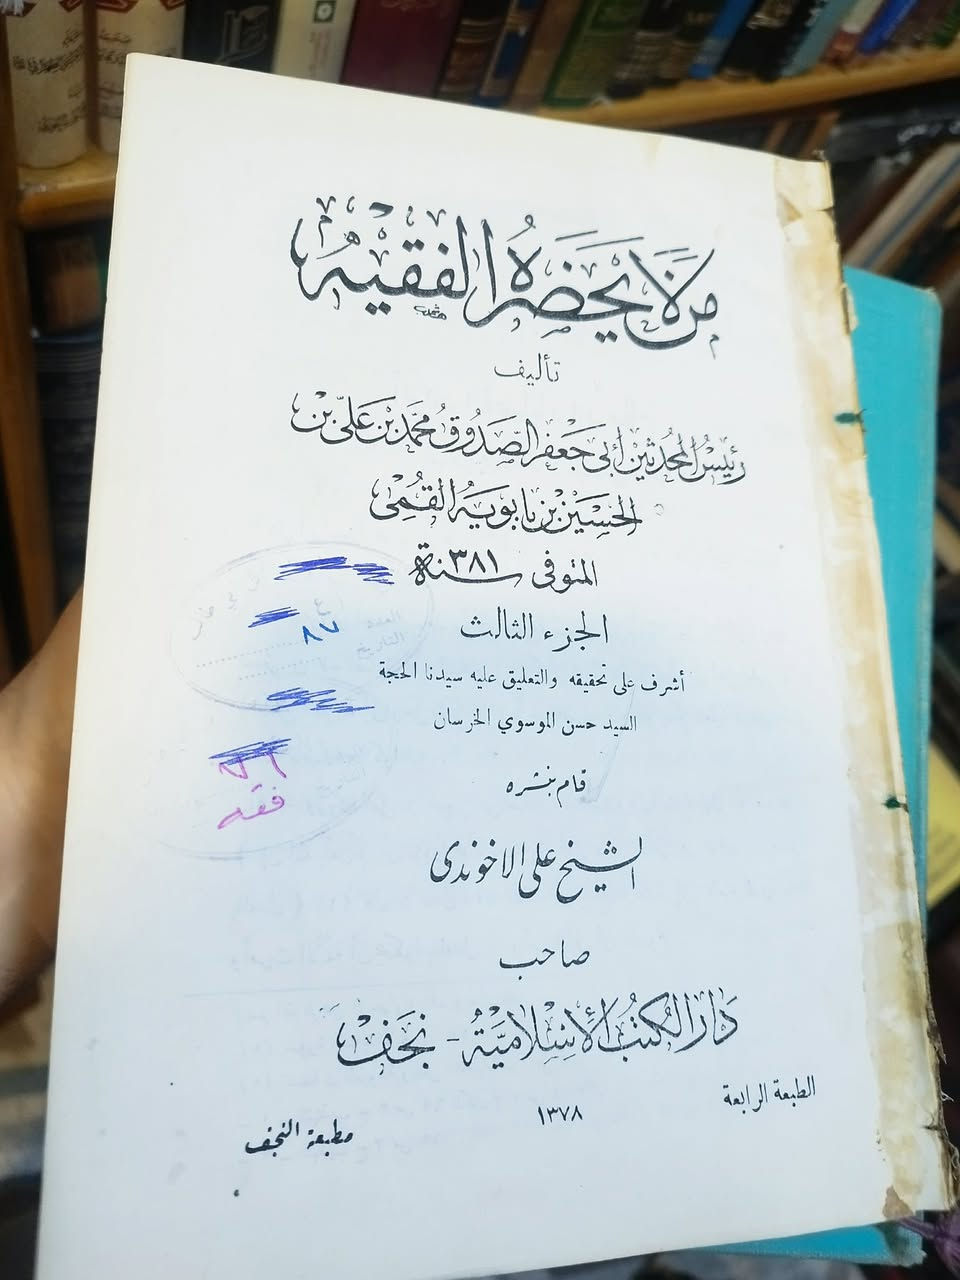 من لا يحضره الفقيه
تأليف
رئيس المحدثين أبي جعفر الصدوق محمد بن علي بن
الحسين بن بابويه القمي
المتوفى سنة ٣٨١
الجزء الثالث
أشرف على تحقيقه والتعليق عليه سيدنا الحجة
السيد حسن الموسوي الخرسان
قام بنشره
الشيخ علي الاخوندي
صاحب
دار الكتب الإسلامية - نجف
الطبعة الرابعة
١٣٧٨
مطبعة النجف
العدد
٨٧
التاريخ
فقه